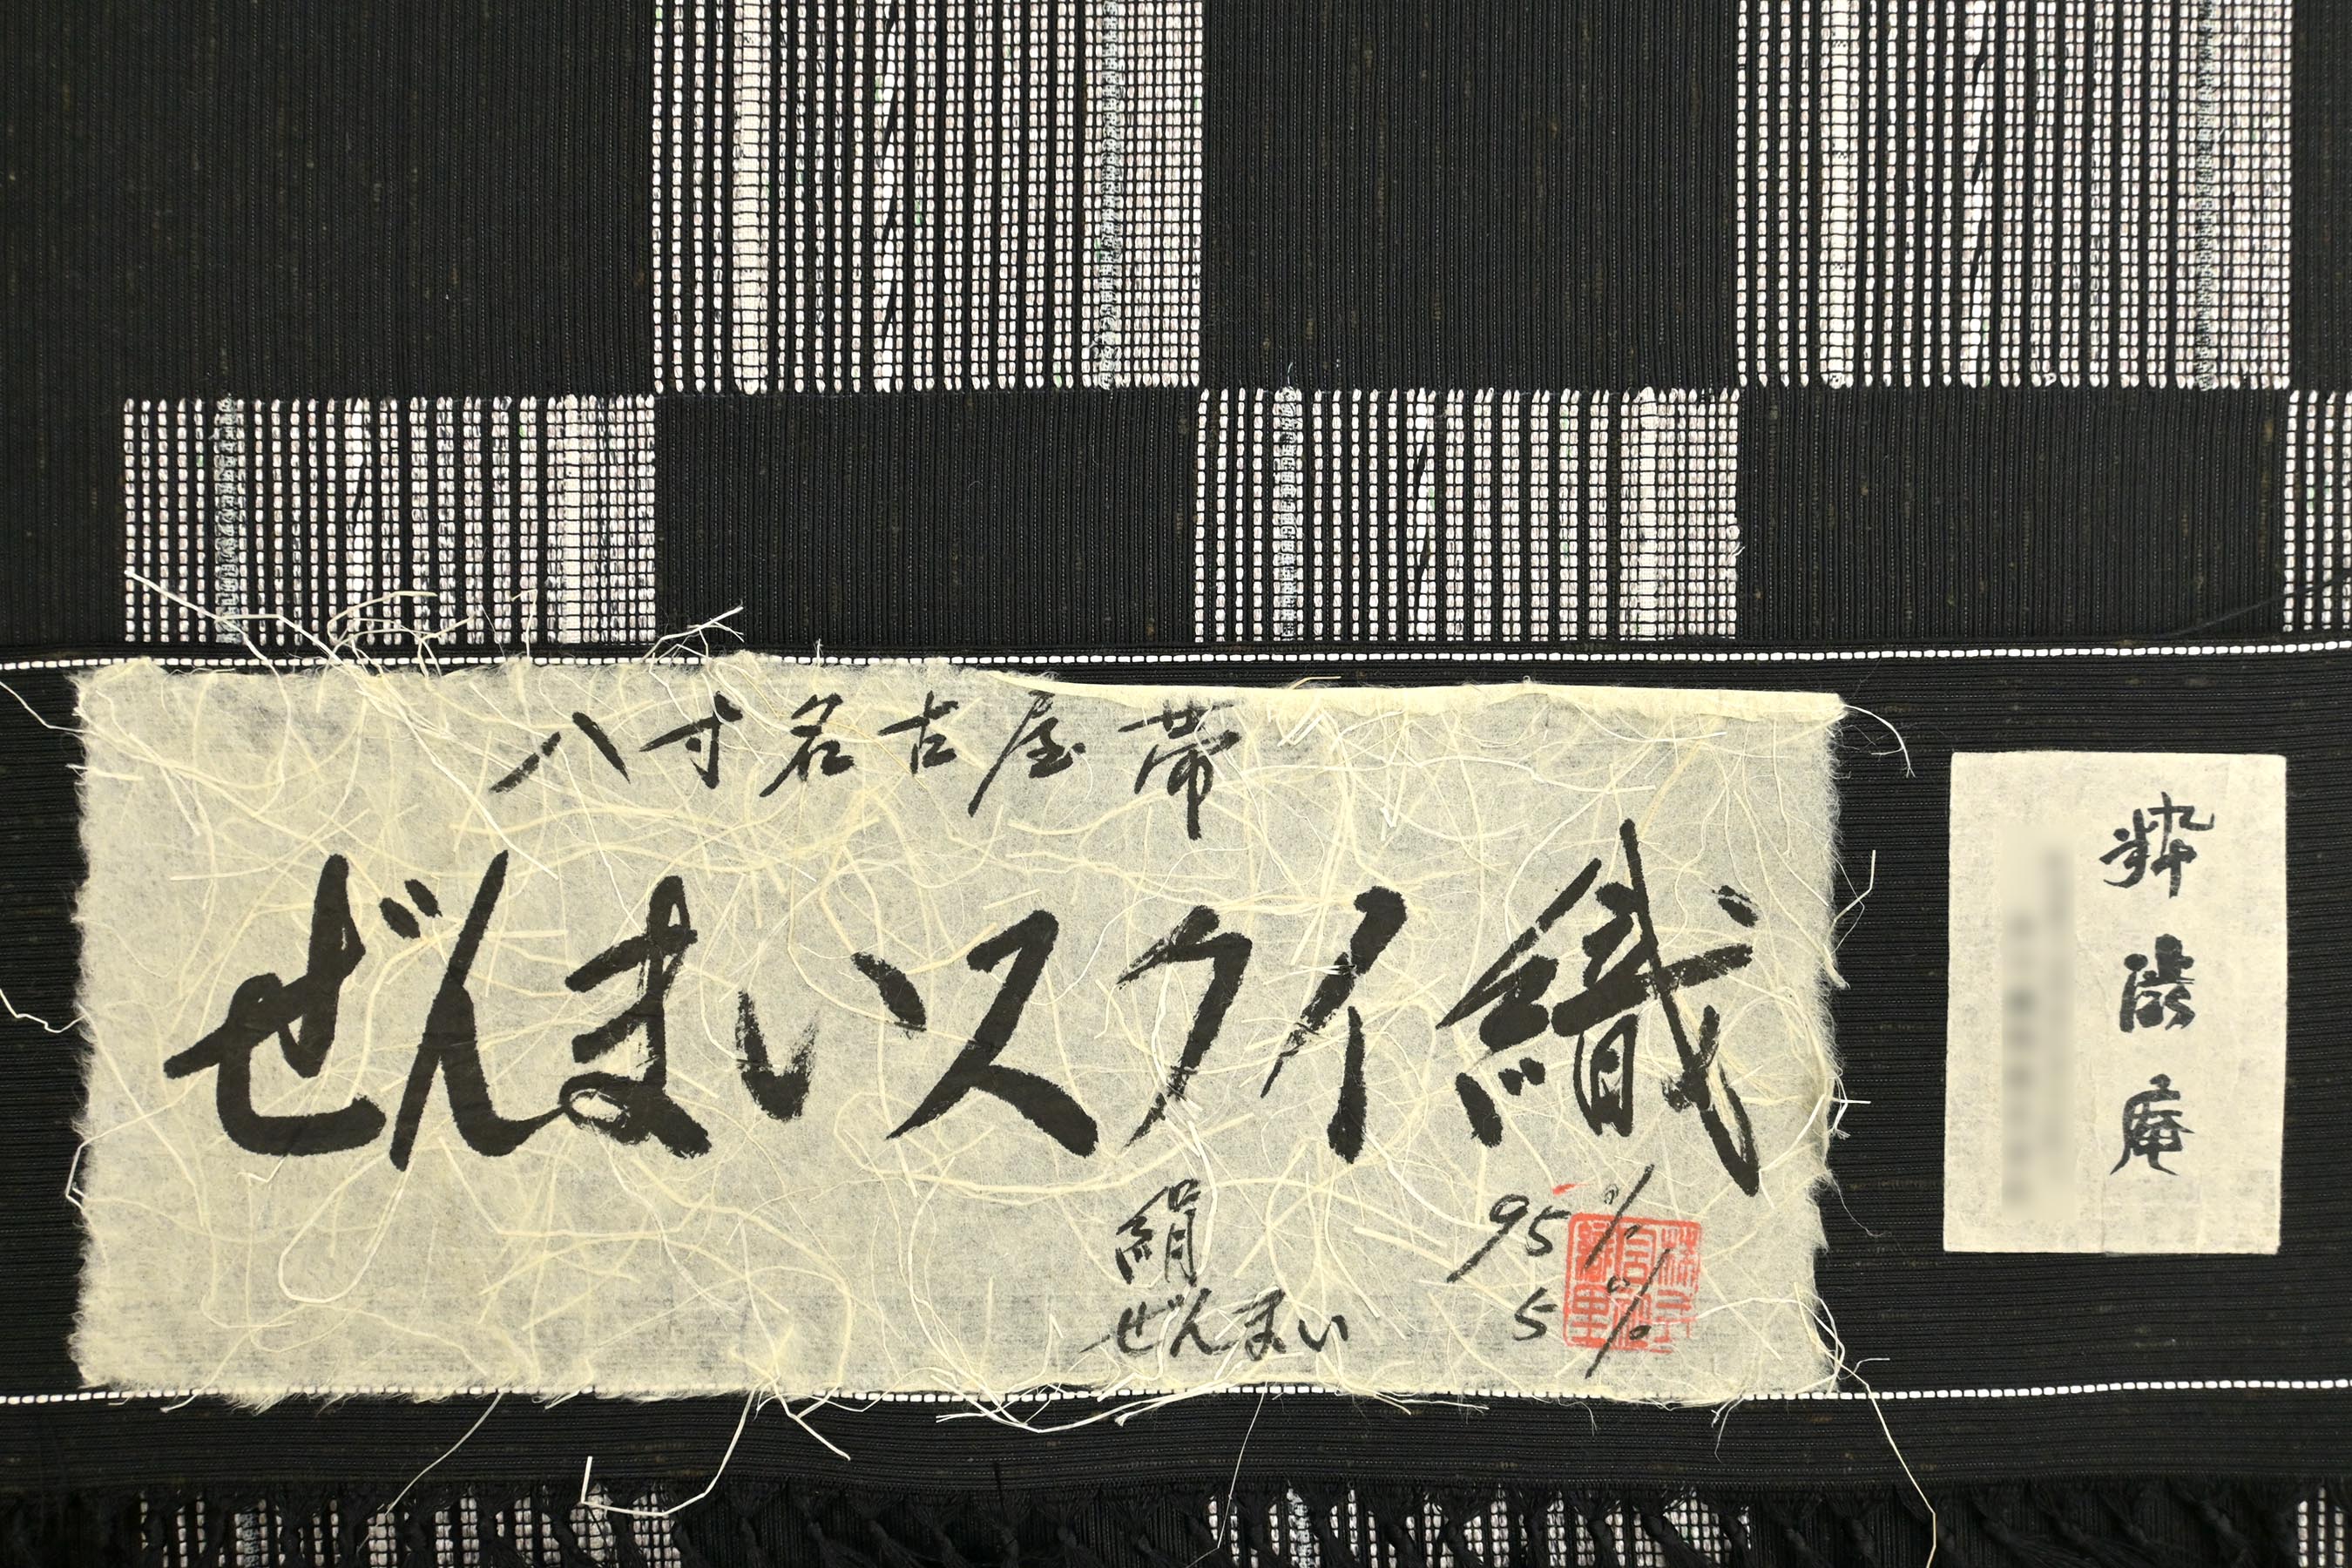 八寸名古屋帯
ぜんまいスクイ織
絹 95%
ぜんまい 5%
粋渋庵